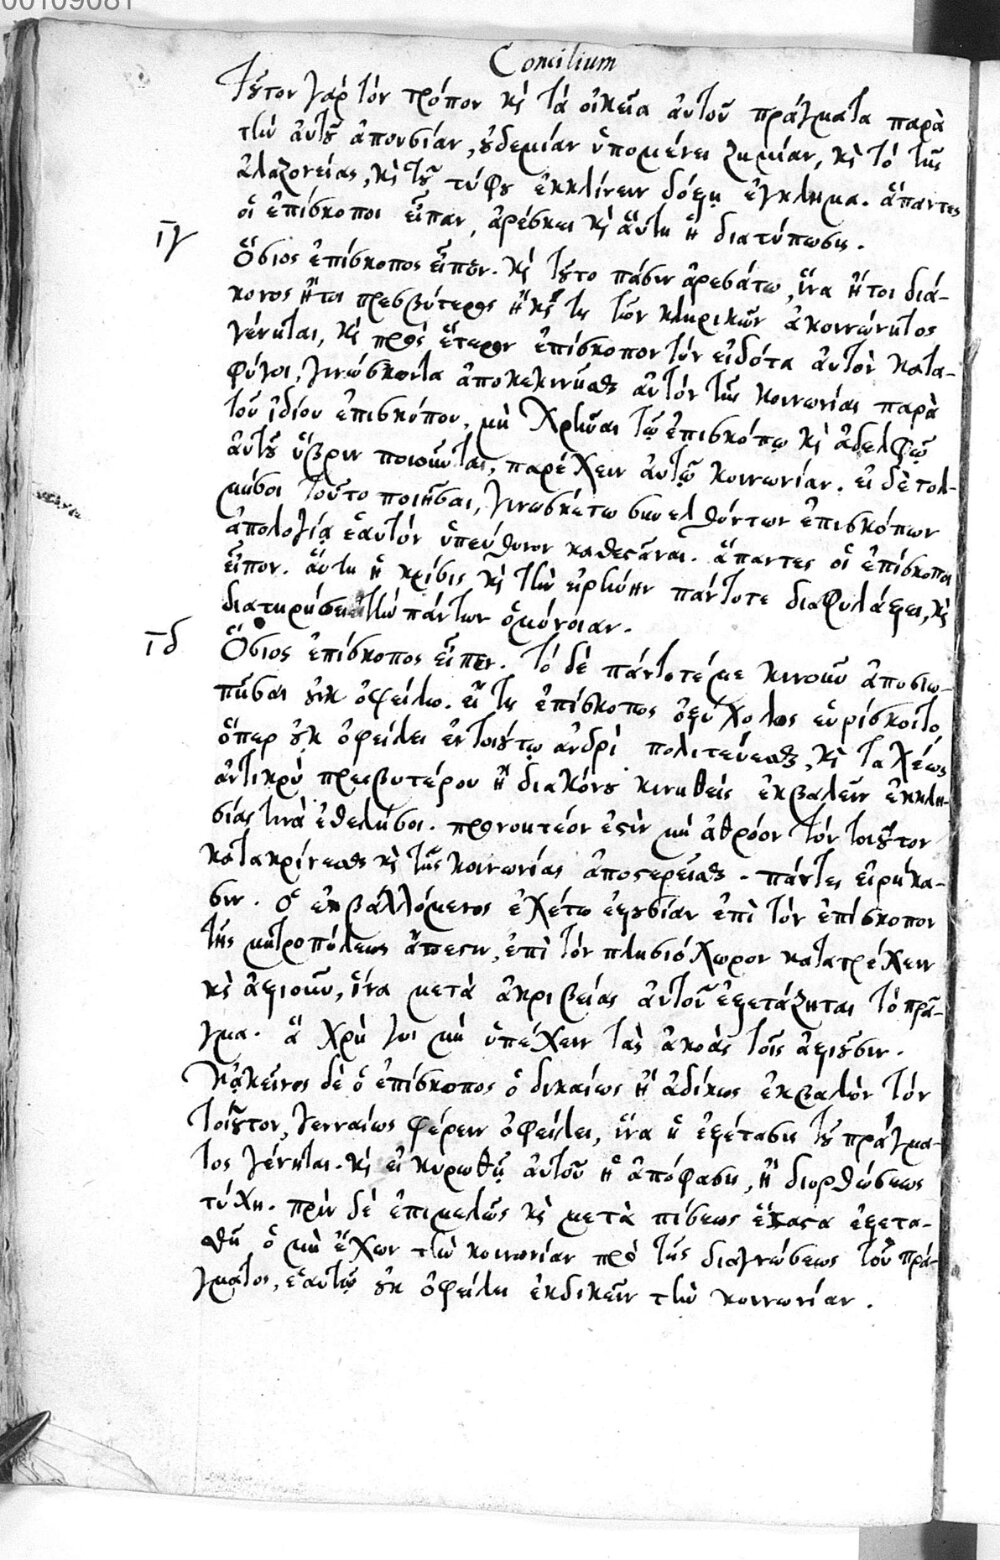 00109081
Concilium
Τοῦτον γὰρ τὸν τρόπον κὶ τὰ οἰκεῖα αὐτοῦ πράγματα παρὰ
τὴν αὐτοῦ ἀπουσίαν, οὐδεμίαν ὑπομένει ζημίαν, κὶ τὸ τῆς
ἀλαζονείας, κὶ τοῦ τύφου ἐκκλίνειν δόξῃ ἔγκλημα. ἅπαντες
οἱ ἐπίσκοποι εἶπαν, ἀρέσκει κὶ αὕτη ἡ διατύπωσις.
ιγ Ὅσιος ἐπίσκοπος εἶπεν. κὶ τοῦτο πᾶσιν ἀρεσάτω, ἵνα ἤτοι διά-
κονος ἤτοι πρεσβύτερος ἢ καί τις τῶν κληρικῶν ἀκοινώνητος
γένηται, κὶ πρὸς ἕτερον ἐπίσκοπον τὸν εἰδότα αὐτὸν κατα-
φύγοι, γινώσκοντα ἀποκεκινῆσθαι αὐτὸν τῆς κοινωνίας παρὰ
τοῦ ἰδίου ἐπισκόπου, μὴ χρῆναι τῷ ἐπισκόπῳ κὶ ἀδελφῷ
αὐτοῦ ὕβριν ποιοῦνται, παρέχειν αὐτῷ κοινωνίαν. εἰ δὲ τολ-
μήσοι τοῦτο ποιῆσαι, γινωσκέτω συνελθόντων ἐπισκόπων
ἀπολογίᾳ ἑαυτὸν ὑπεύθυνον καθεστάναι. ἅπαντες οἱ ἐπίσκοποι
εἶπον. αὕτη ἡ κρίσις κὶ τὴν εἰρήνην πάντοτε διαφυλάξει, κὶ
διατηρήσει τὴν πάντων ὁμόνοιαν.
ιδ Ὅσιος ἐπίσκοπος εἶπεν. τὸ δὲ πάντοτέ με κινοῦν ἀποσιω-
πῆσαι οὐκ ὀφείλω. εἴ τις ἐπίσκοπος ὀξύχολος εὑρίσκοιτο,
ὅπερ οὐκ ὀφείλει ἐν τοιούτῳ ἀνδρὶ πολιτεύεσθαι, κὶ ταχέως
ἀντικρὺ πρεσβυτέρου ἢ διακόνου κινηθεὶς ἐκβαλεῖν ἐκκλη-
σίας τινὰ ἐθελήσοι. προνοητέον ἐστὶν μὴ ἀθρόον τὸν τοιοῦτον
κατακρίνεσθαι κὶ τῆς κοινωνίας ἀποστερεῖσθαι. πάντες εἰρήκα-
σιν. ὁ ἐκβαλλόμενος ἐχέτω ἐξουσίαν ἐπὶ τὸν ἐπίσκοπον
τῆς μητροπόλεως ἄπεστιν, ἐπὶ τὸν πλησιόχωρον κατατρέχειν
κὶ ἀξιοῦν, ἵνα μετὰ ἀκριβείας αὐτοῦ ἐξετάζηται τὸ πρᾶ-
γμα. ἃ χρή τοι μὴ ὑπέχειν τὰς ἀκοὰς τοῖς ἀξιοῦσιν.
κἀκεῖνος δὲ ὁ ἐπίσκοπος ὁ δικαίως ἢ ἀδίκως ἐκβαλὼν τὸν
τοιοῦτον, γενναίως φέρειν ὀφείλει, ἵνα ἡ ἐξέτασις τοῦ πράγμα-
τος γένηται. κὶ εἰ κυρωθῇ αὐτοῦ ἡ ἀπόφασις, ἢ διορθώσεως
τύχῃ. πρὶν δὲ ἐπιμελῶς κὶ μετὰ πίστεως ἕκαστα ἐξετα-
σθῇ ὁ μὴ ἔχων τὴν κοινωνίαν πρὸ τῆς διαγνώσεως τοῦ πρά-
γματος, ἑαυτῷ οὐκ ὀφείλει ἐκδικεῖν τὴν κοινωνίαν.